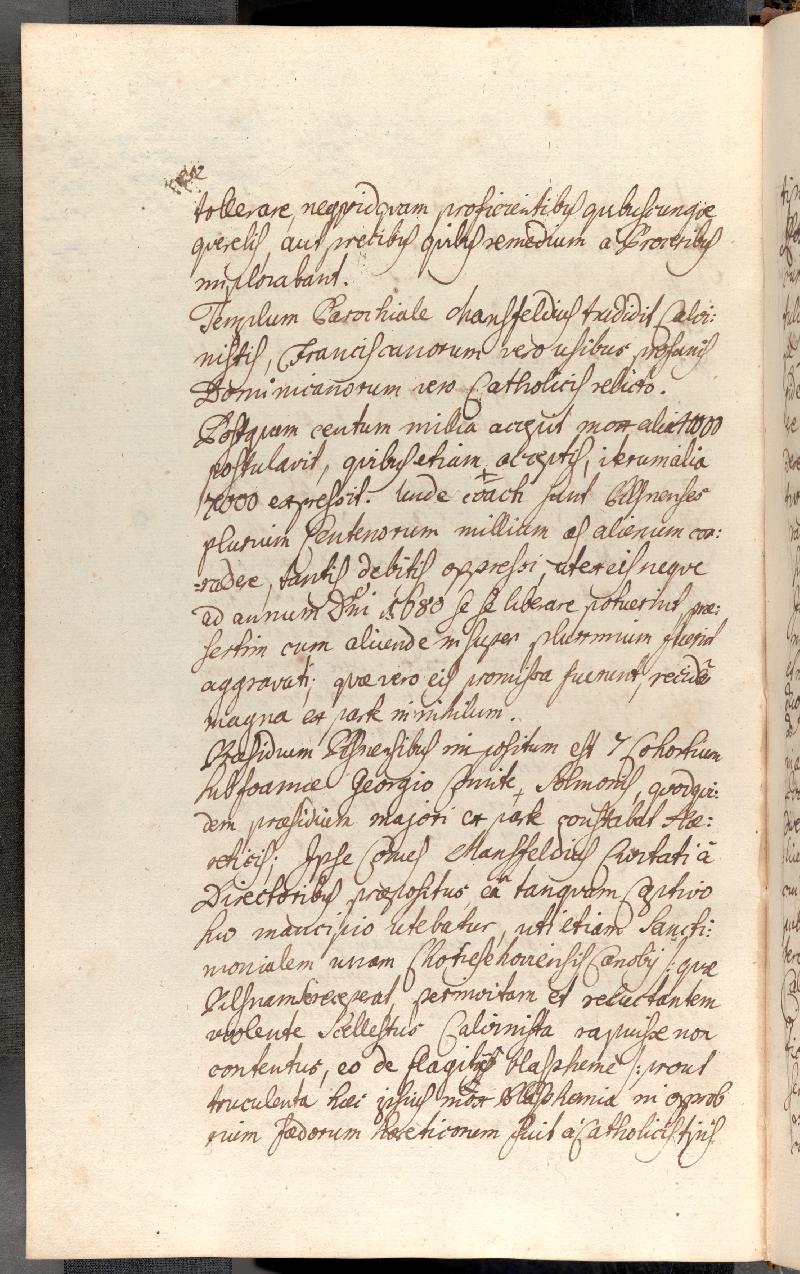 tollerare, nequidquam proficientibus quibuscunque
querelis, aut precibus quibus remedium a Proceribus
implorabant.
Templum Parochiale Mansfeldius tradidit Calvi:
nistis, Franciscanorum vero usibus profanis
Dominicanorum vero Catholicis relicto.
Postquam centum millia accepit mox alia
postulavit, quibus etiam acceptis, iterum alia
expressit. Unde coacti sunt Pilsnenses
plurium Centenorum millium æs alienum cor:
-radere, tantis debitis oppressi, ut ex eis neque
ad annum Dni 1680 se se liberare potuerint præ:
sertim cum aliunde insuper plurimum fuerint
aggravati; quæ vero eis promissa fuerunt, recidēr
magna ex parte in nihilum.
Præsidium Pilsnensibus impositum est 7 Cohortium
sub Joanne Georgio Comite Solmonis, quodqui:
dem præsidium majori ex parte constabat Hæ:
reticis; Ipse Comes Mansfeldius Civitati à
Directoribus præpositus, eā tanquam captivo
suo mancipio utebatur, uti etiam Sancti:
monialem unam Chotieschoviensis Cænobij /: quæ
Pilsnam se receperat, permoitam et reluctantem
violente Scellestus Calvinista rapuisse non
contentus, eo de flagitio blaspheme /: prout
truculenta hæc ipsius mox blasphemia in opprob
rium fædorum hæreticorum fuit à Catholicis typis